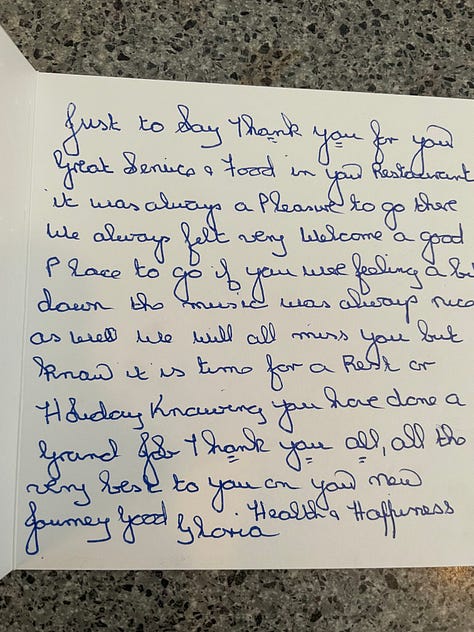 Just to Say Thank you for your
Great Service & Food in your Restaurant
it was always a Pleasure to go there
We always felt very Welcome a good
Place to go if you were feeling a bit
down the music was always nice
as well We will all miss you but
Know it is time for a Rest or
Holiday Knowing you have done a
Grand Job Thank you all, all the
very best to you on your new
Journey Good Health & Happiness
Gloria